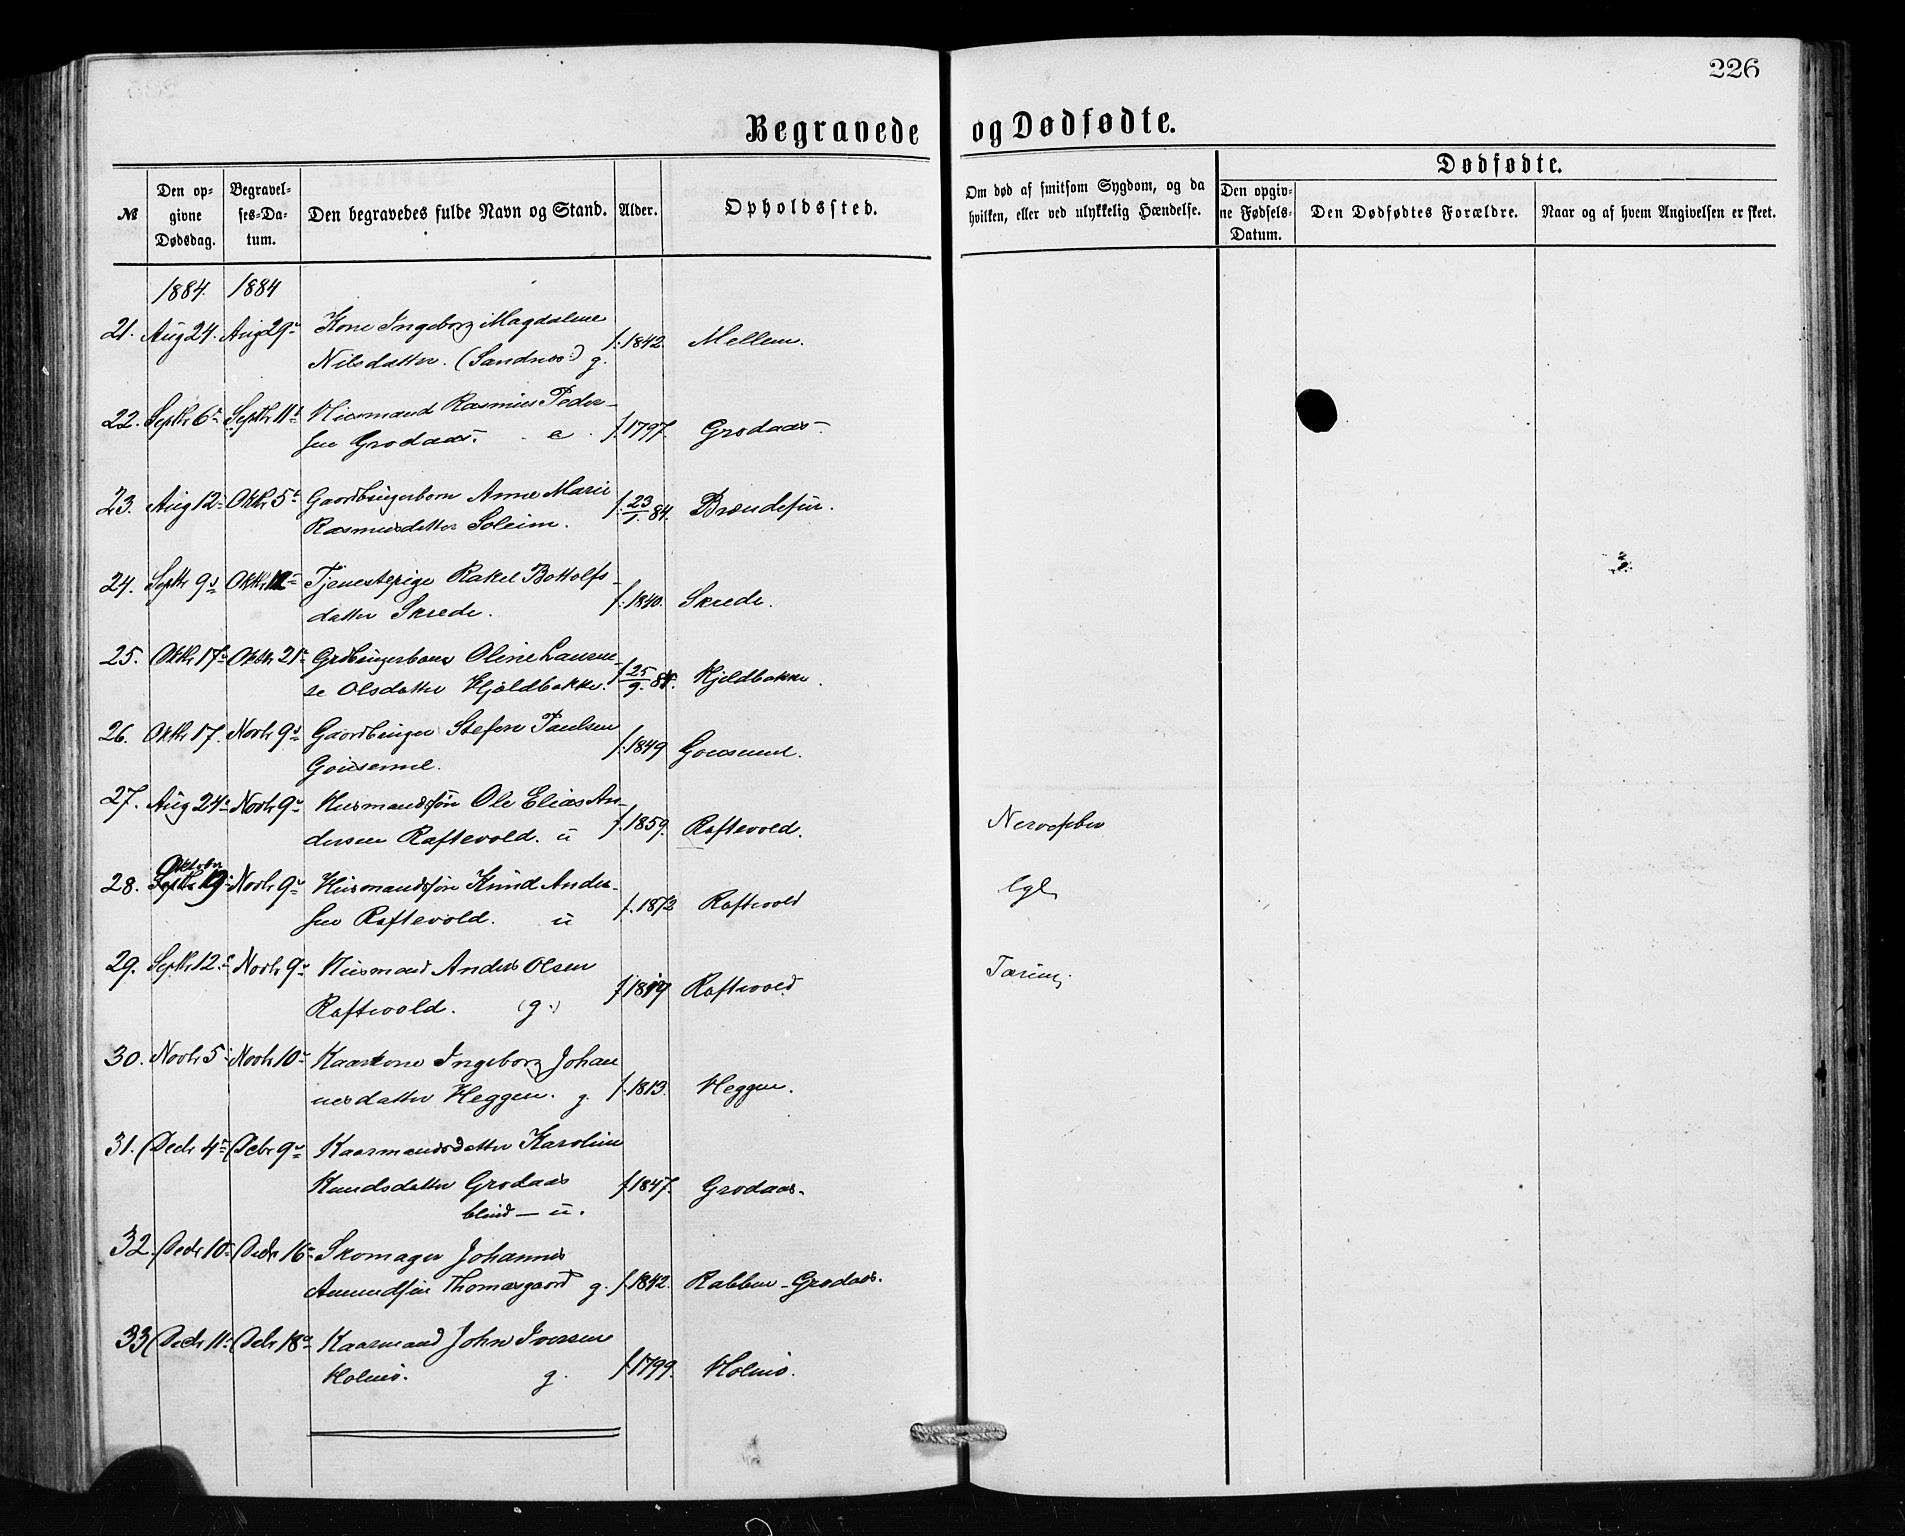 226
Begravede og Dødfødte.
Dødfødte.
№ Den opgivne Dødsdag. Begravelses-Datum. Den begravedes fulde Navn og Stand. Alder. Opholdssted. Om død af smitsom Sygdom, og da hvilken, eller ved ulykkelig Hændelse. Den opgivne Fødsels-Datum. Den Dødfødtes Forældre. Naar og af hvem Angivelsen er skeet.
1884. 1884
21. Aug 24. Aug 29 Kone Ingeborg Magdalene
Nilsdatter. (Sandnes:) g. f. 1842. Mellem.
22. Septbr 6 Septbr 11 Husmand Rasmus Peder-
sen Grodaas. e. f. 1797. Grodaas.
23. Aug 12 Oktbr 5 Gaardbrugerbarn Anne Marie
Rasmusdatter Soleim. f. 23/1. 84. Brændefur.
24. Septbr 9 Oktbr 12 Tjenestepige Rakel Bottolfs-
datter Skrede. f. 1840. Skrede.
25. Oktbr 17 Oktbr 21 Grdbrugerbarn Oline Laurin-
se Olsdatter Hjeldbakke. f. 25/9. 84. Hjeldbakke.
26. Oktbr 17. Novbr 9 Gaardbruger Stefen Paulsen
Gousemel. f. 1849 Gousemel.
27. Aug 24 Novbr 9 Husmandssøn Ole Elias An-
dersen Raftevold. u f. 1859. Raftevold. Nervefeber
28. Oktober 19 Novbr 9 Husmandssøn Knud Ander-
sen Raftevold. u f. 1872 Raftevold
29. Septbr 12. Novbr 9 Husmand Anders Olsen
Raftevold. (g.) f. 1819 Raftevold Tæring
30. Novbr 5 Novbr 10 Kaarkone Ingeborg Johan
nesdatter Heggen. g. f. 1813. Heggen.
31. Decbr 4 Decbr 9 Kaarmandsdatter Karoline
Knudsdatter Grodaas f. 1847. Grodaas.
blind — u.
32. Decbr 10 Decbr 16 Skomager Johannes
Amundsen Thomasgaard g. f. 1842. Rabben-Grodaas.
33 Decbr 11 Decbr 18 Kaarmand John Iversen
Holmø. g. f. 1799. Holmø.